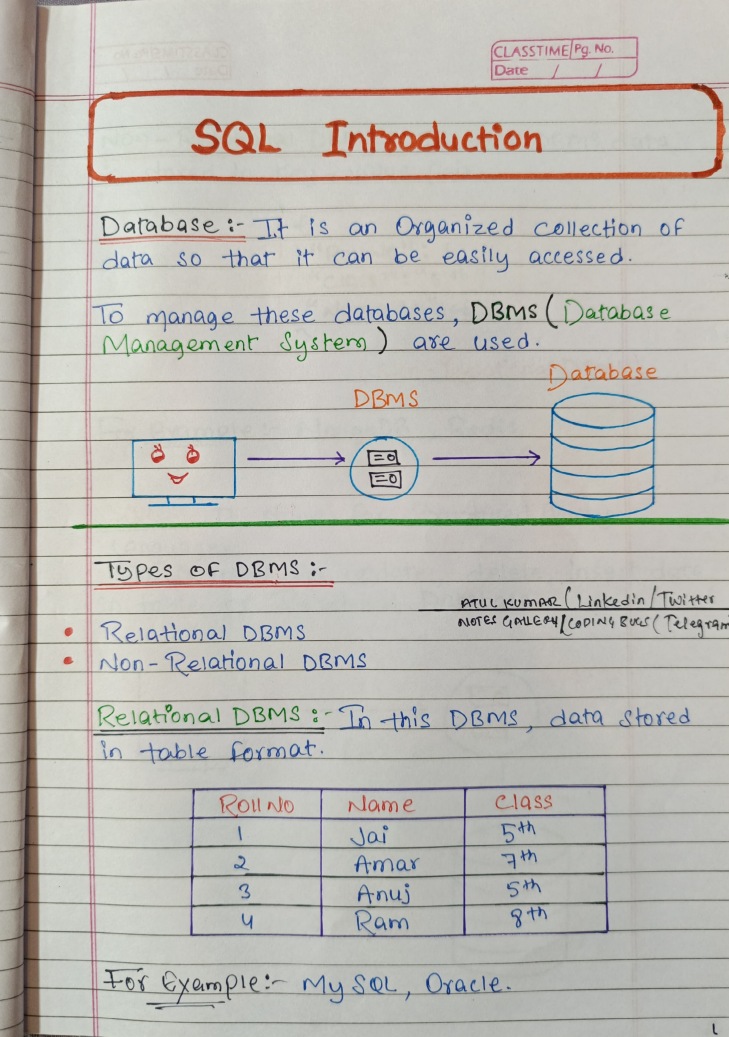 CLASSTIME Pg. No.
Date / /
SQL Introduction
Database :- It is an Organized collection of
data so that it can be easily accessed.
To manage these databases, DBMS (Database
Management System) are used.
Database
DBMS
Types OF DBMS :-
ATUL KUMAR (Linkedin/Twitter
NOTES GALLERY/CODING BUGS (Telegram
• Relational DBMS
• Non-Relational DBMS
Relational DBMS :- In this DBMS, data stored
in table format.
Roll No Name Class
1 Jai 5th
2 Amar 7th
3 Anuj 5th
4 Ram 8th
For Example:- My SQL, Oracle.
1